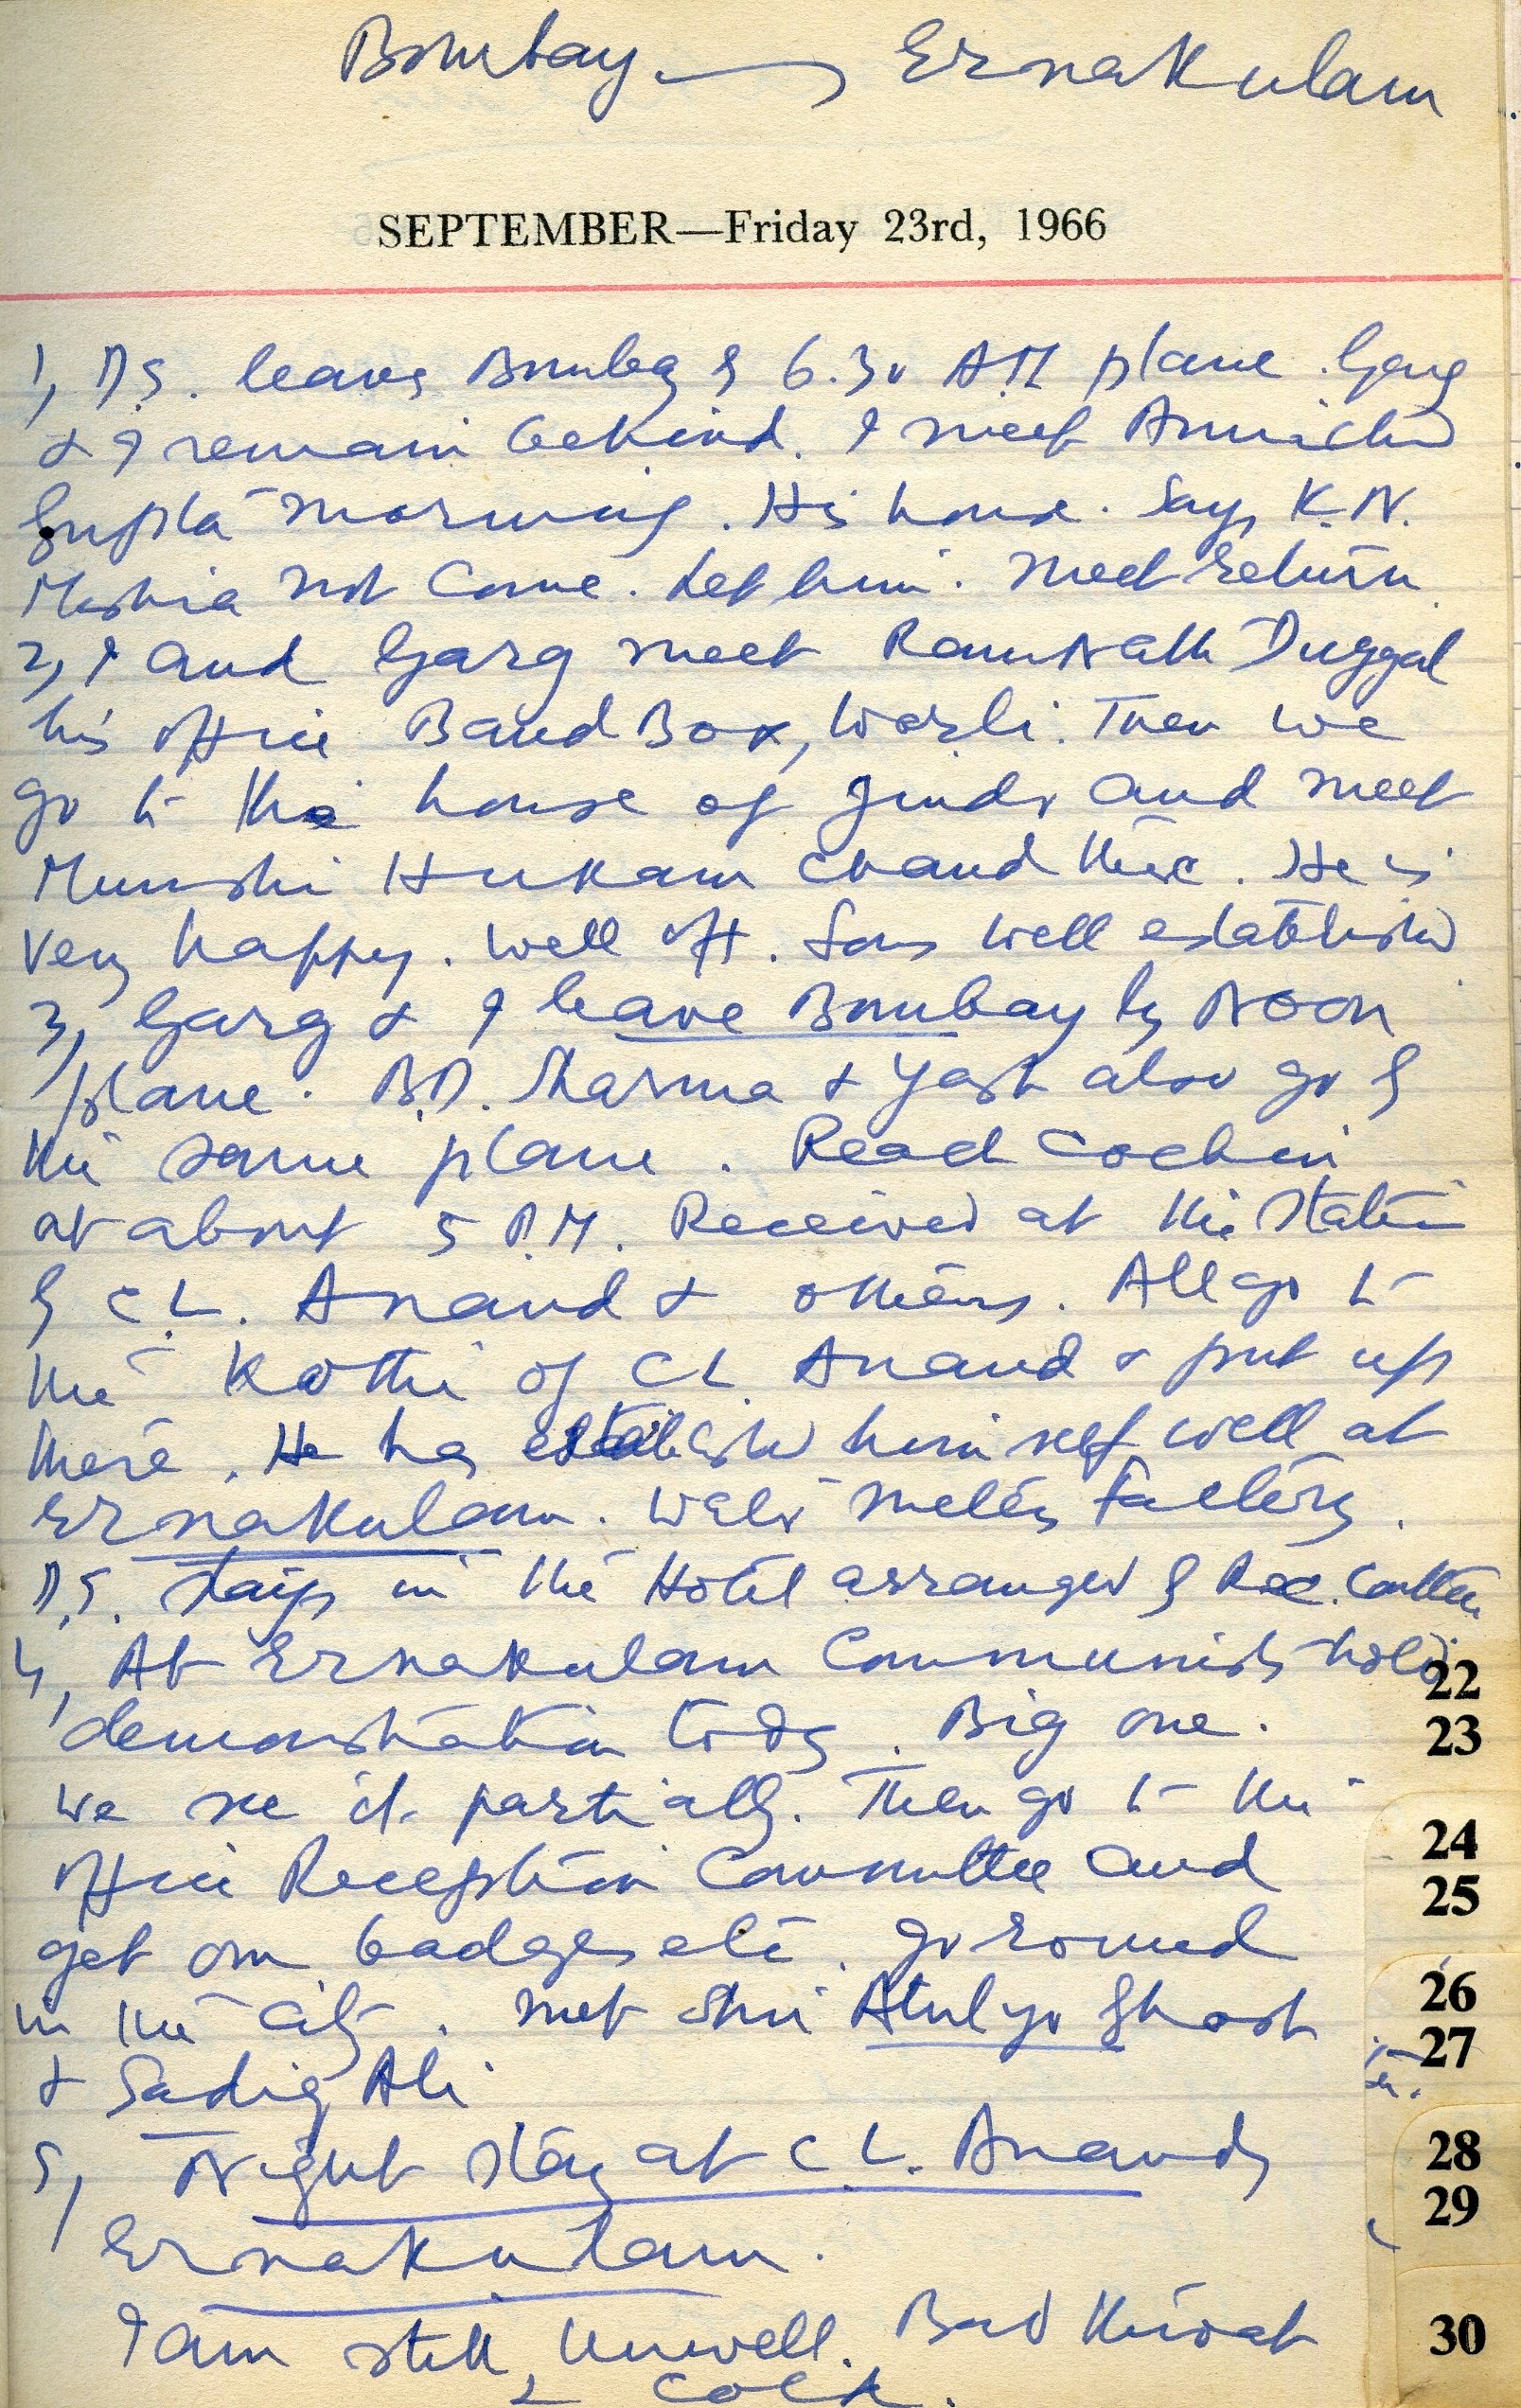 Bombay → Ernakulam
SEPTEMBER—Friday 23rd, 1966
1, D.S. leaves Bombay by 6.30 AM plane. Garg
& I remain behind. I meet Amichand
Gupta morning. His house. Says K.N.
Mishra not come. Let him. Meet return.
2, I and Garg meet RamNath Duggal
his office Band Box, Worli. Then we
go to the house of Jindr and meet
Munshi Hukam Chand there. He is
very happy. Well off. Sons well established
3, Garg & I leave Bombay by Noon
plane. B.D. Sharma & Yash also go by
the same plane. Reach Cochin
at about 5 P.M. Received at the Station
by C.L. Anand & others. All go to
the Kothi of C.L. Anand & put up
there. He has established himself well at
Ernakulam. Water meters Factory.
D.S. stays in the Hotel arranged by Rec. Comttee
4, At Ernakulam Communists hold
demonstration today. Big one.
we see it partially. Then go to the
office Reception Committee and
get our badges etc. go round
in the city. Met Shri Atulya Ghosh
& Sadiq Ali
5, Night stay at C.L. Anands
Ernakulam.
I am still unwell. Bad throat
& cold.
22
23
24
25
26
27
28
29
30